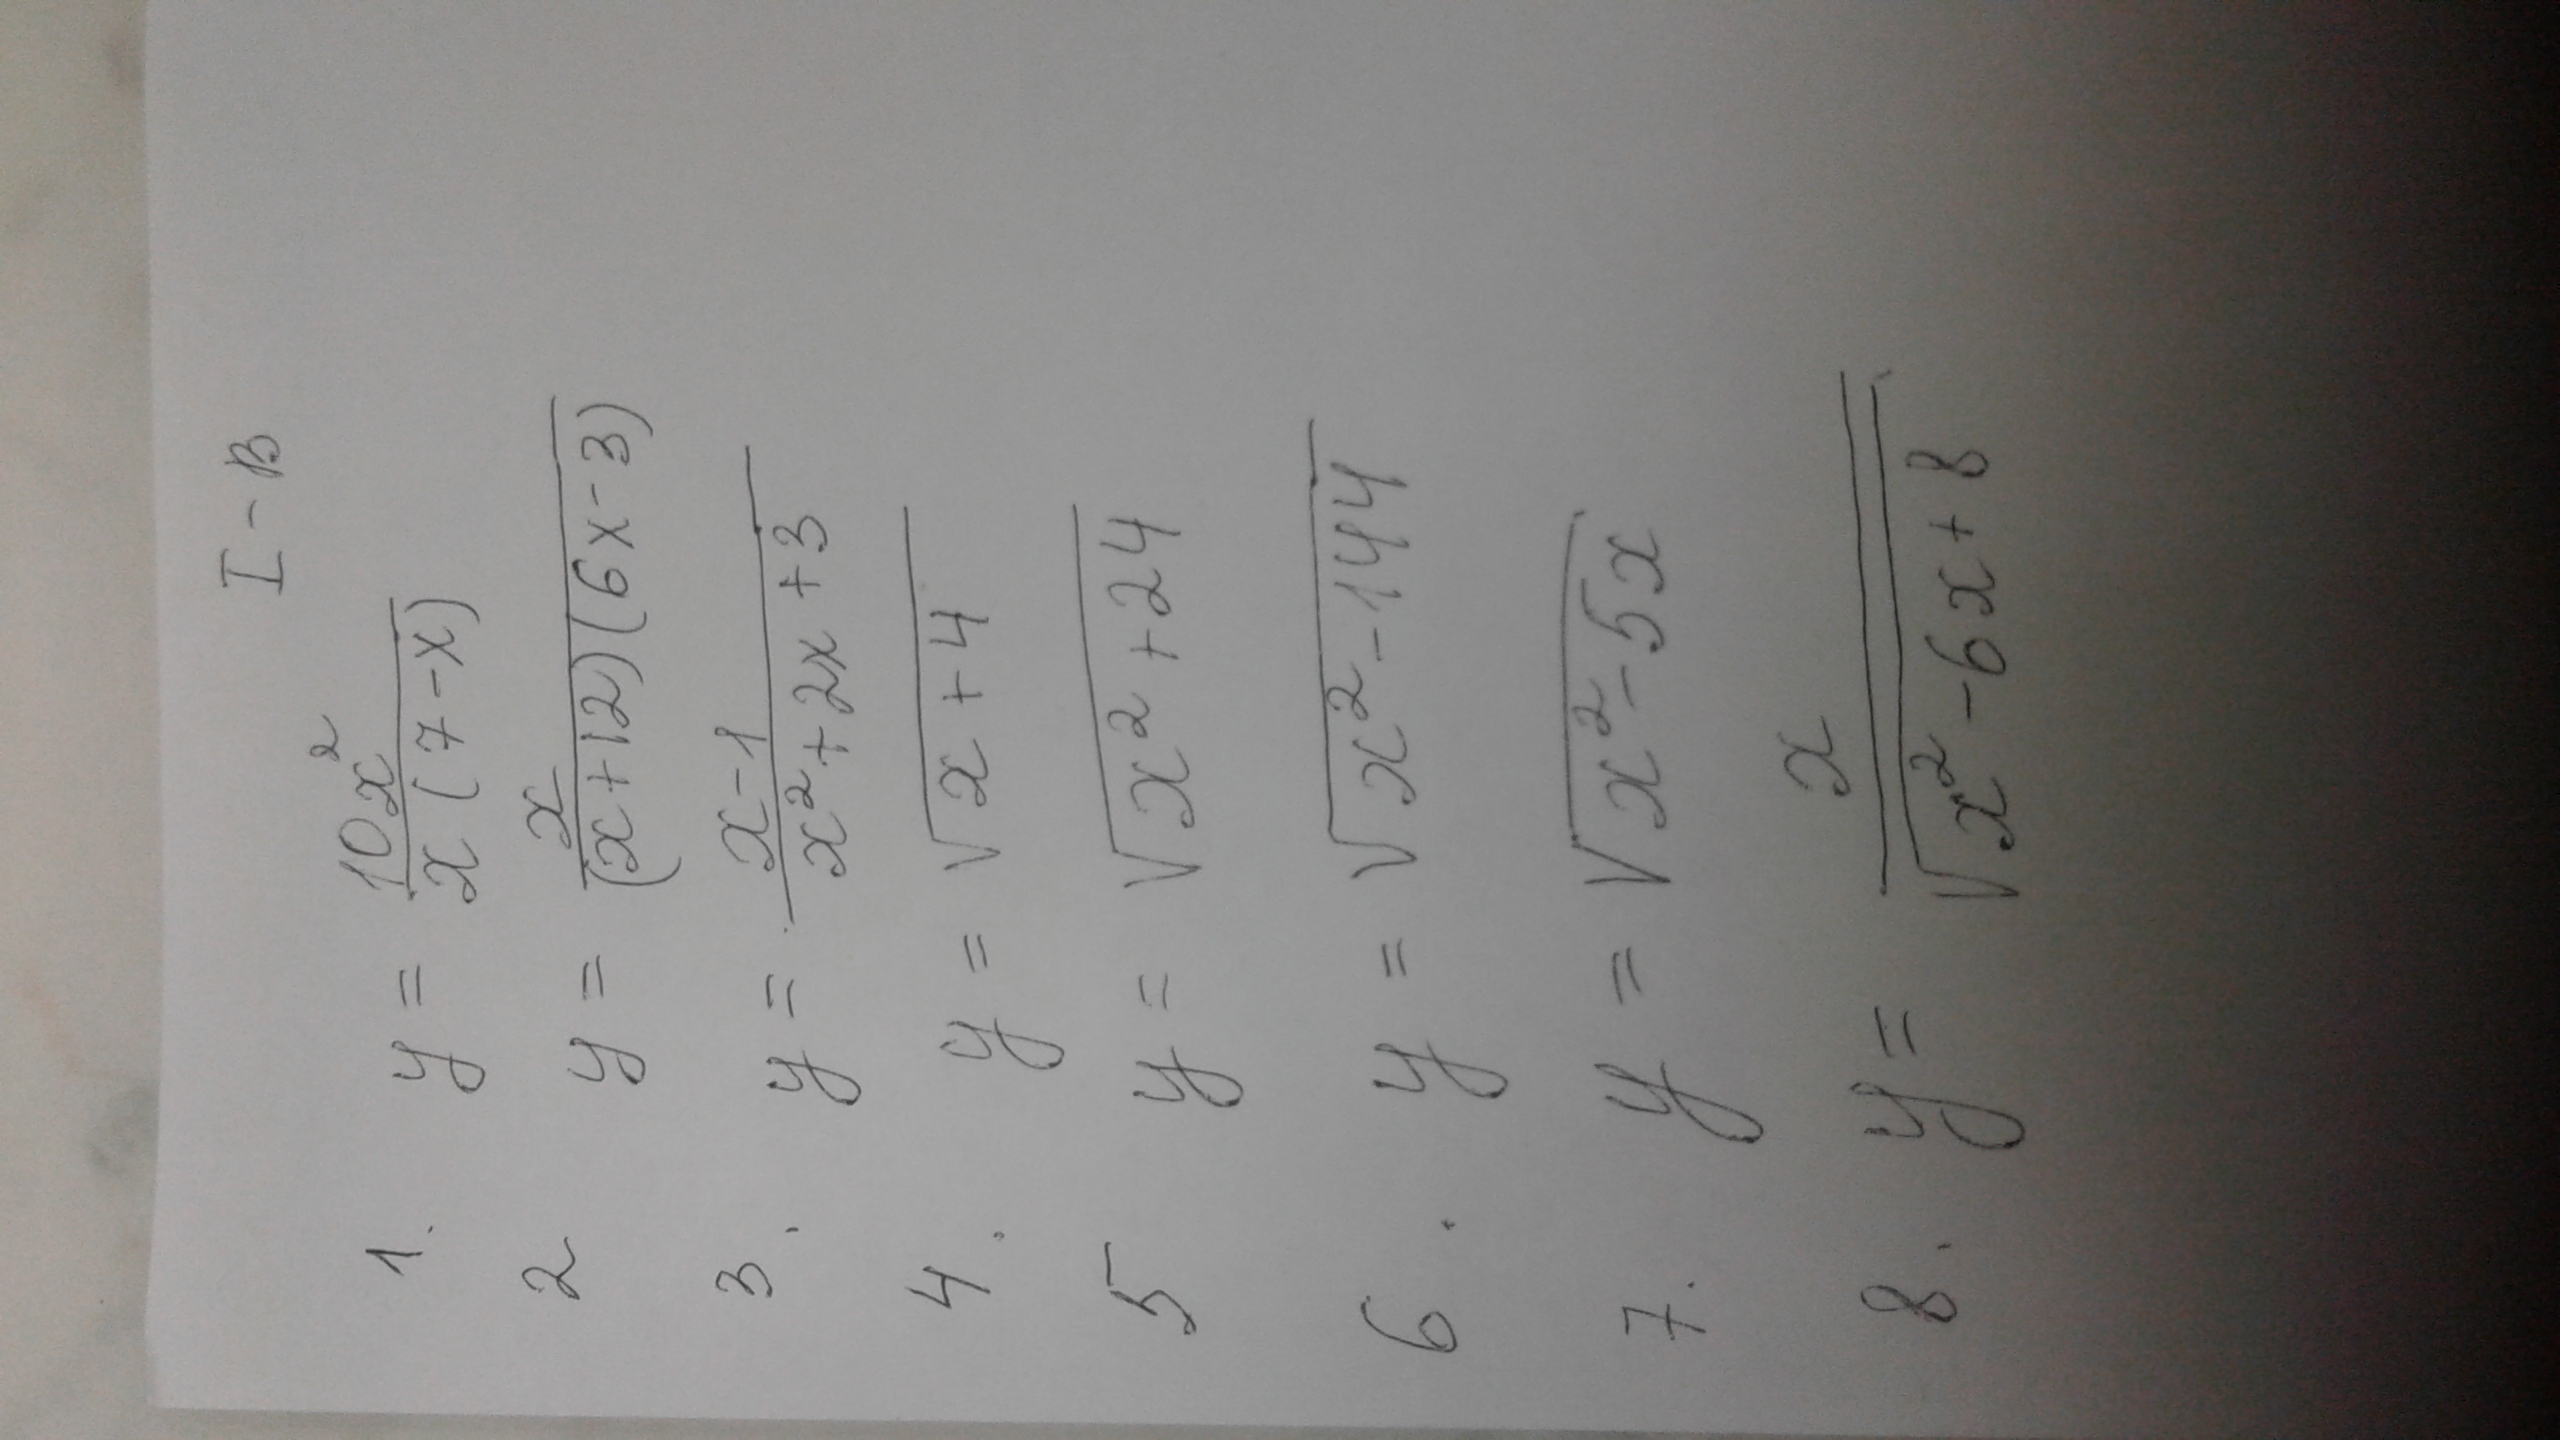 I-В
1. y = 10x²/x(7-x)
2 y = x/(x+12)(6x-3)
3. y = x-1/x²+2x+3
4. y = √x+4
5 y = √x²+24
6. y = √x²-144
7. y = √x²-5x
8. y = x/√x²-6x+8